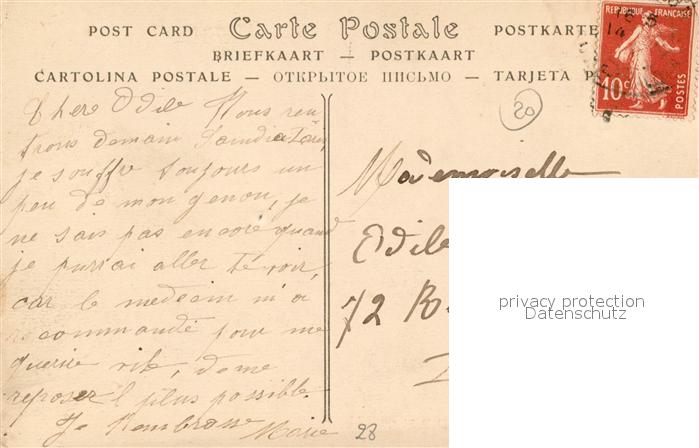 POST CARD Carte Postale POSTKARTE
BRIEFKAART — POSTKAART
CARTOLINA POSTALE — ОТКРЫТОЕ ПИСЬМО — TARJETA P
REPUBLIQUE FRANÇAISE
10c POSTES
20
Chere Odile Nous ren
trons demain Samdi a
je souffre toujours un
peu de mon genou, je
ne sais pas encore quand
je purrai aller te voir,
car le medecin m'a
recommandé pour me
guerire vite, de me
reposer l plus possible.
Je t'embrasse Marie
Mademoiselle
Odile
72 R
28
privacy protection
Datenschutz